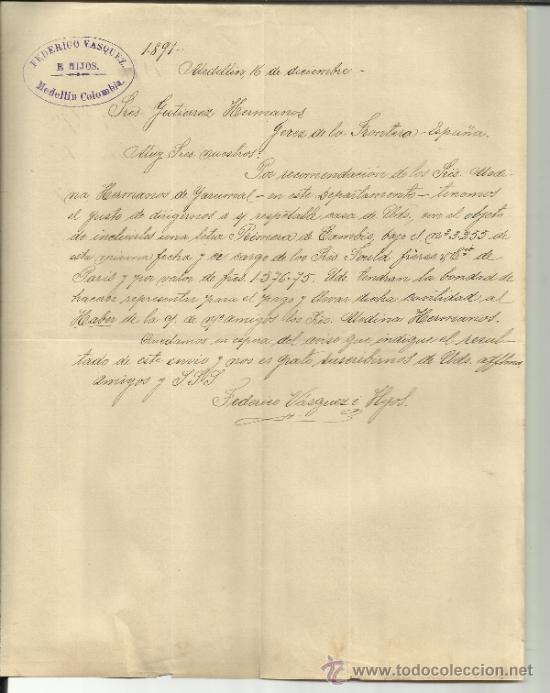 FEDERICO VASQUEZ
E HIJOS.
Medellin Colombia.
1891-
Medellin 16 de diciembre -
Sres. Gutierrez Hermanos
Jerez de la Frontera - España.
Muy Sres. nuestros:
Por recomendacion de los Sres. Medi-
na Hermanos de Yarumal - en este Departamento - tenemos
el gusto de dirigirnos a la respetable casa de Uds. con el objeto
de incluirles una letra Primera de Cambio, bajo el nº 3355 de
esta misma fecha y a cargo de los Sres. Fould frères & Cie de
Paris y por valor de fcos. 1576-75. Uds. tendran la bondad de
hacerse representar para el pago y llevar dicha cantidad al
Haber de la c/. de n/. amigos los Sres. Medina Hermanos.
Quedamos en espera del aviso que indique el resul-
tado de este envio y nos es grato suscribirnos de Uds. affmos
amigos y S.S.S
Federico Vasquez i Hijos.
www.todocoleccion.net